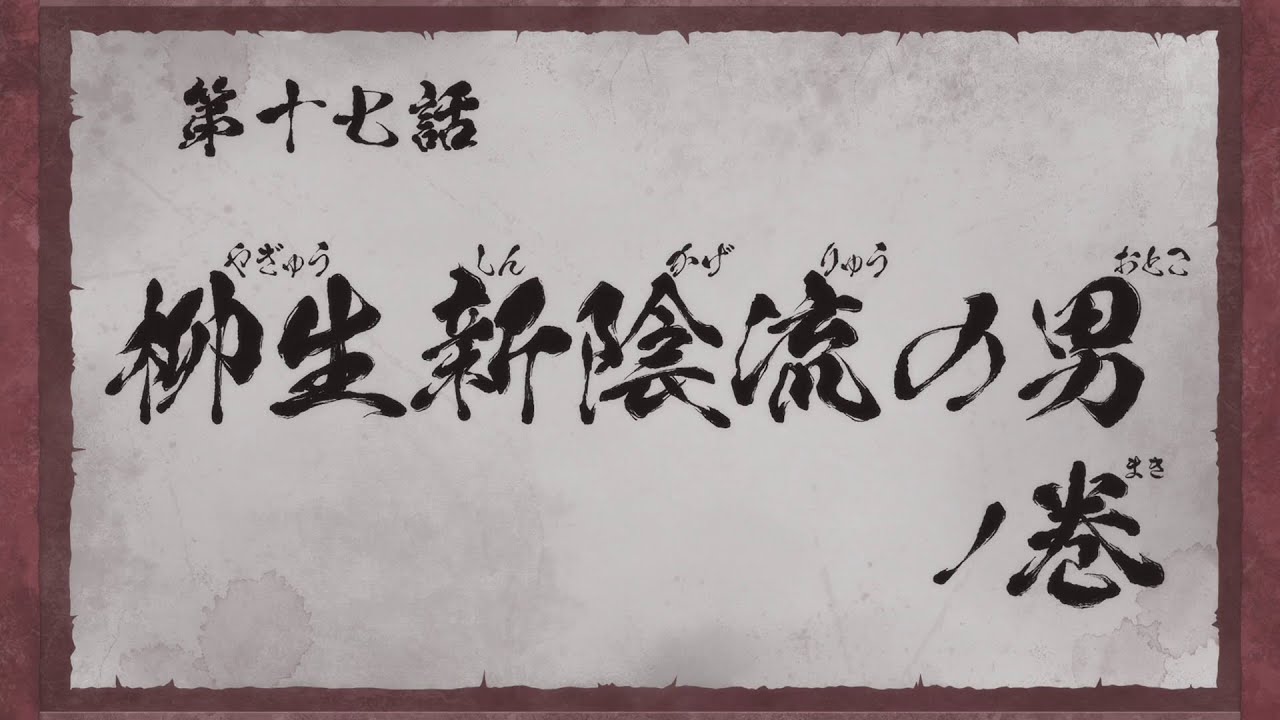 第十七話
やぎゅう しん かげ りゅう おとこ
柳生新陰流の男
まき
ノ巻